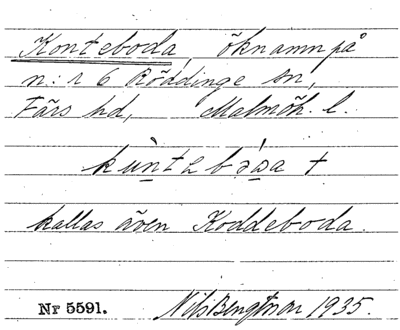 Konteboda, öknamn på
n:r 6 Röddinge sn,
Färs hd, Malmöh. l.
kallas även Koddeboda.
Nr 5591. Nils Bengtsson 1935.